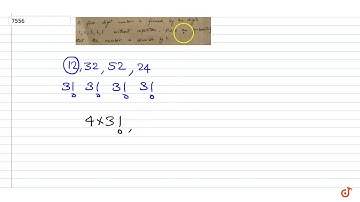 7556
A five digit number is formed by the digit
1, 2, 3, 4, 5 without repetition. Find
that the number is divisible by 4.
12, 32, 52, 24
3! 3! 3! 3!
4 × 3!,